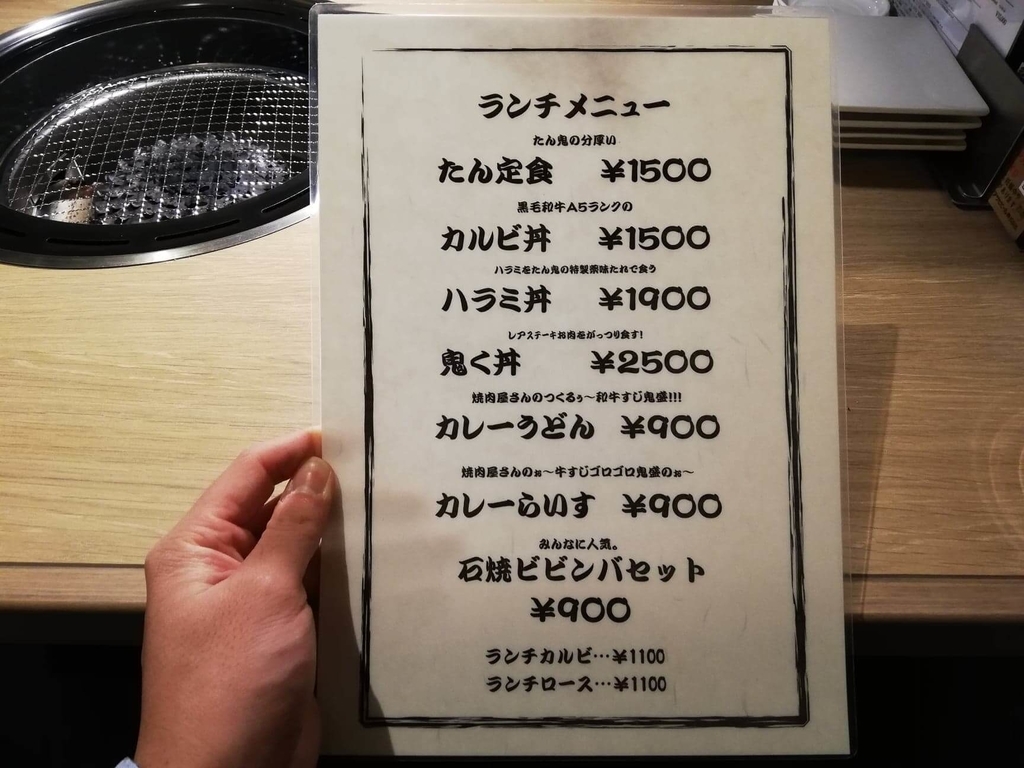 ランチメニュー
たん鬼の分厚い
たん定食 ¥1500
黒毛和牛A5ランクの
カルビ丼 ¥1500
ハラミをたん鬼の特製薬味たれで食う
ハラミ丼 ¥1900
レアステーキお肉をがっつり食す!
鬼く丼 ¥2500
焼肉屋さんのつくるぅ〜和牛すじ鬼盛!!!
カレーうどん ¥900
焼肉屋さんのぉ〜牛すじゴロゴロ鬼盛のぉ〜
カレーらいす ¥900
みんなに人気。
石焼ビビンバセット
¥900
ランチカルビ…¥1100
ランチロース…¥1100